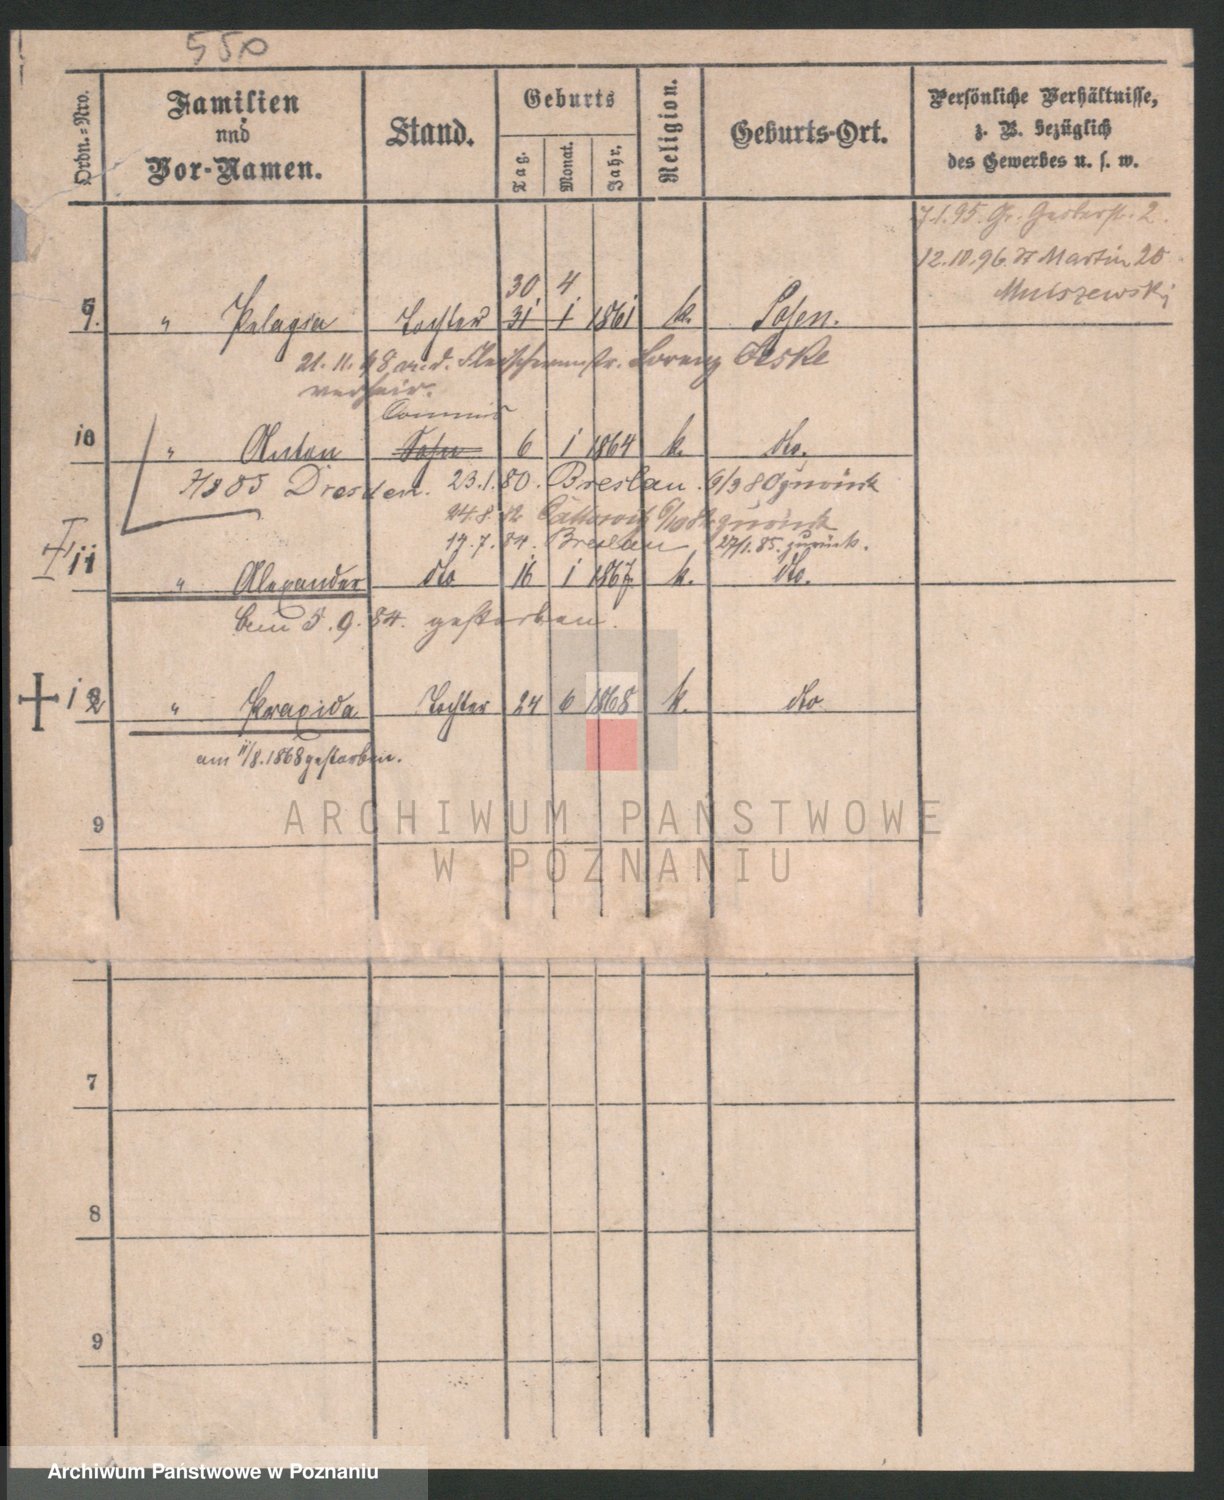 550
Ordn.-Nro.
Familien
und
Vor-Namen.
Stand.
Geburts
Tag.
Monat.
Jahr.
Religion.
Geburts-Ort.
Persönliche Verhältnisse,
z. B. bezüglich
des Gewerbes u. s. w.
7.1.95. Gr. Gerberstr. 2.
12.10.96. St Martin 20
30 4
9. " Pelagia Tochter 31 1 1861 k. Posen.
21. 11. 98 m. d. Fleischermstr. Lorenz Teske
verheir.
Commis
10 " Anton Sohn 6 1 1864 k. dto.
7/8 85 Dresden. 23.1.80. Breslau. 9/3 80 zurück
24.8.82 Kattowitz 6/10 82 zurück
19.7.84. Breslau 27/1.85. zurück.
11 " Alexander dto 16 1 1867 k. dto.
5.9.84. gestorben.
12 " Praxida Tochter 24 6 1868 k. dto
am 11/8.1868 gestorben.
9
ARCHIWUM PAŃSTWOWE
W POZNANIU
7
8
9
Archiwum Państwowe w Poznaniu